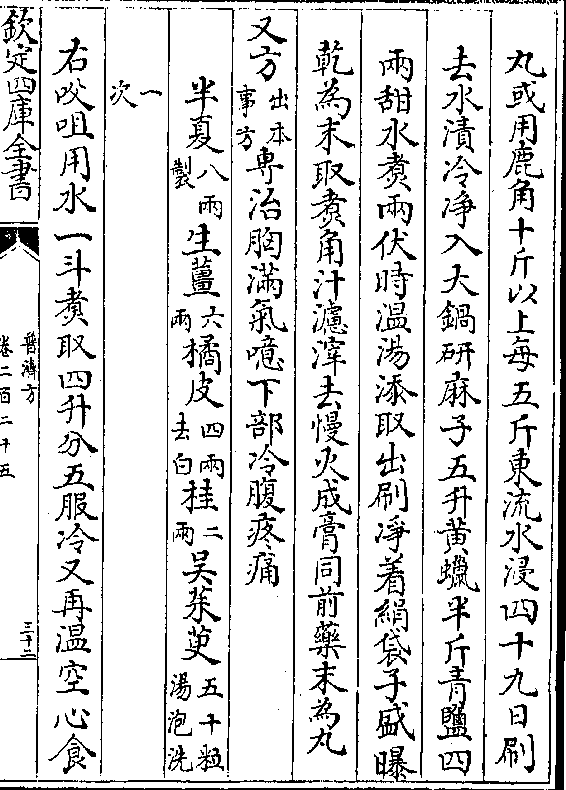 丸或用鹿角十斤以上每五斤東流水浸四十九日刷
去水漬冷净入大鍋研麻子五升黄蠟半斤青鹽四
兩甜水煑兩伏時温湯添取出刷凈着絹袋子盛曝
乾為末取煑角汁濾滓去慢火成膏同前藥末為丸
又方出本事方専治胸滿氣噫下部冷腹疼痛
半夏八兩製生薑六兩橘皮四兩去白桂二兩吴茱萸五十粒湯泡洗
一次
右㕮咀用水一斗煑取四升分五服冷又再温空心食
欽定四庫全書
普濟方
卷二百二十五
三十二